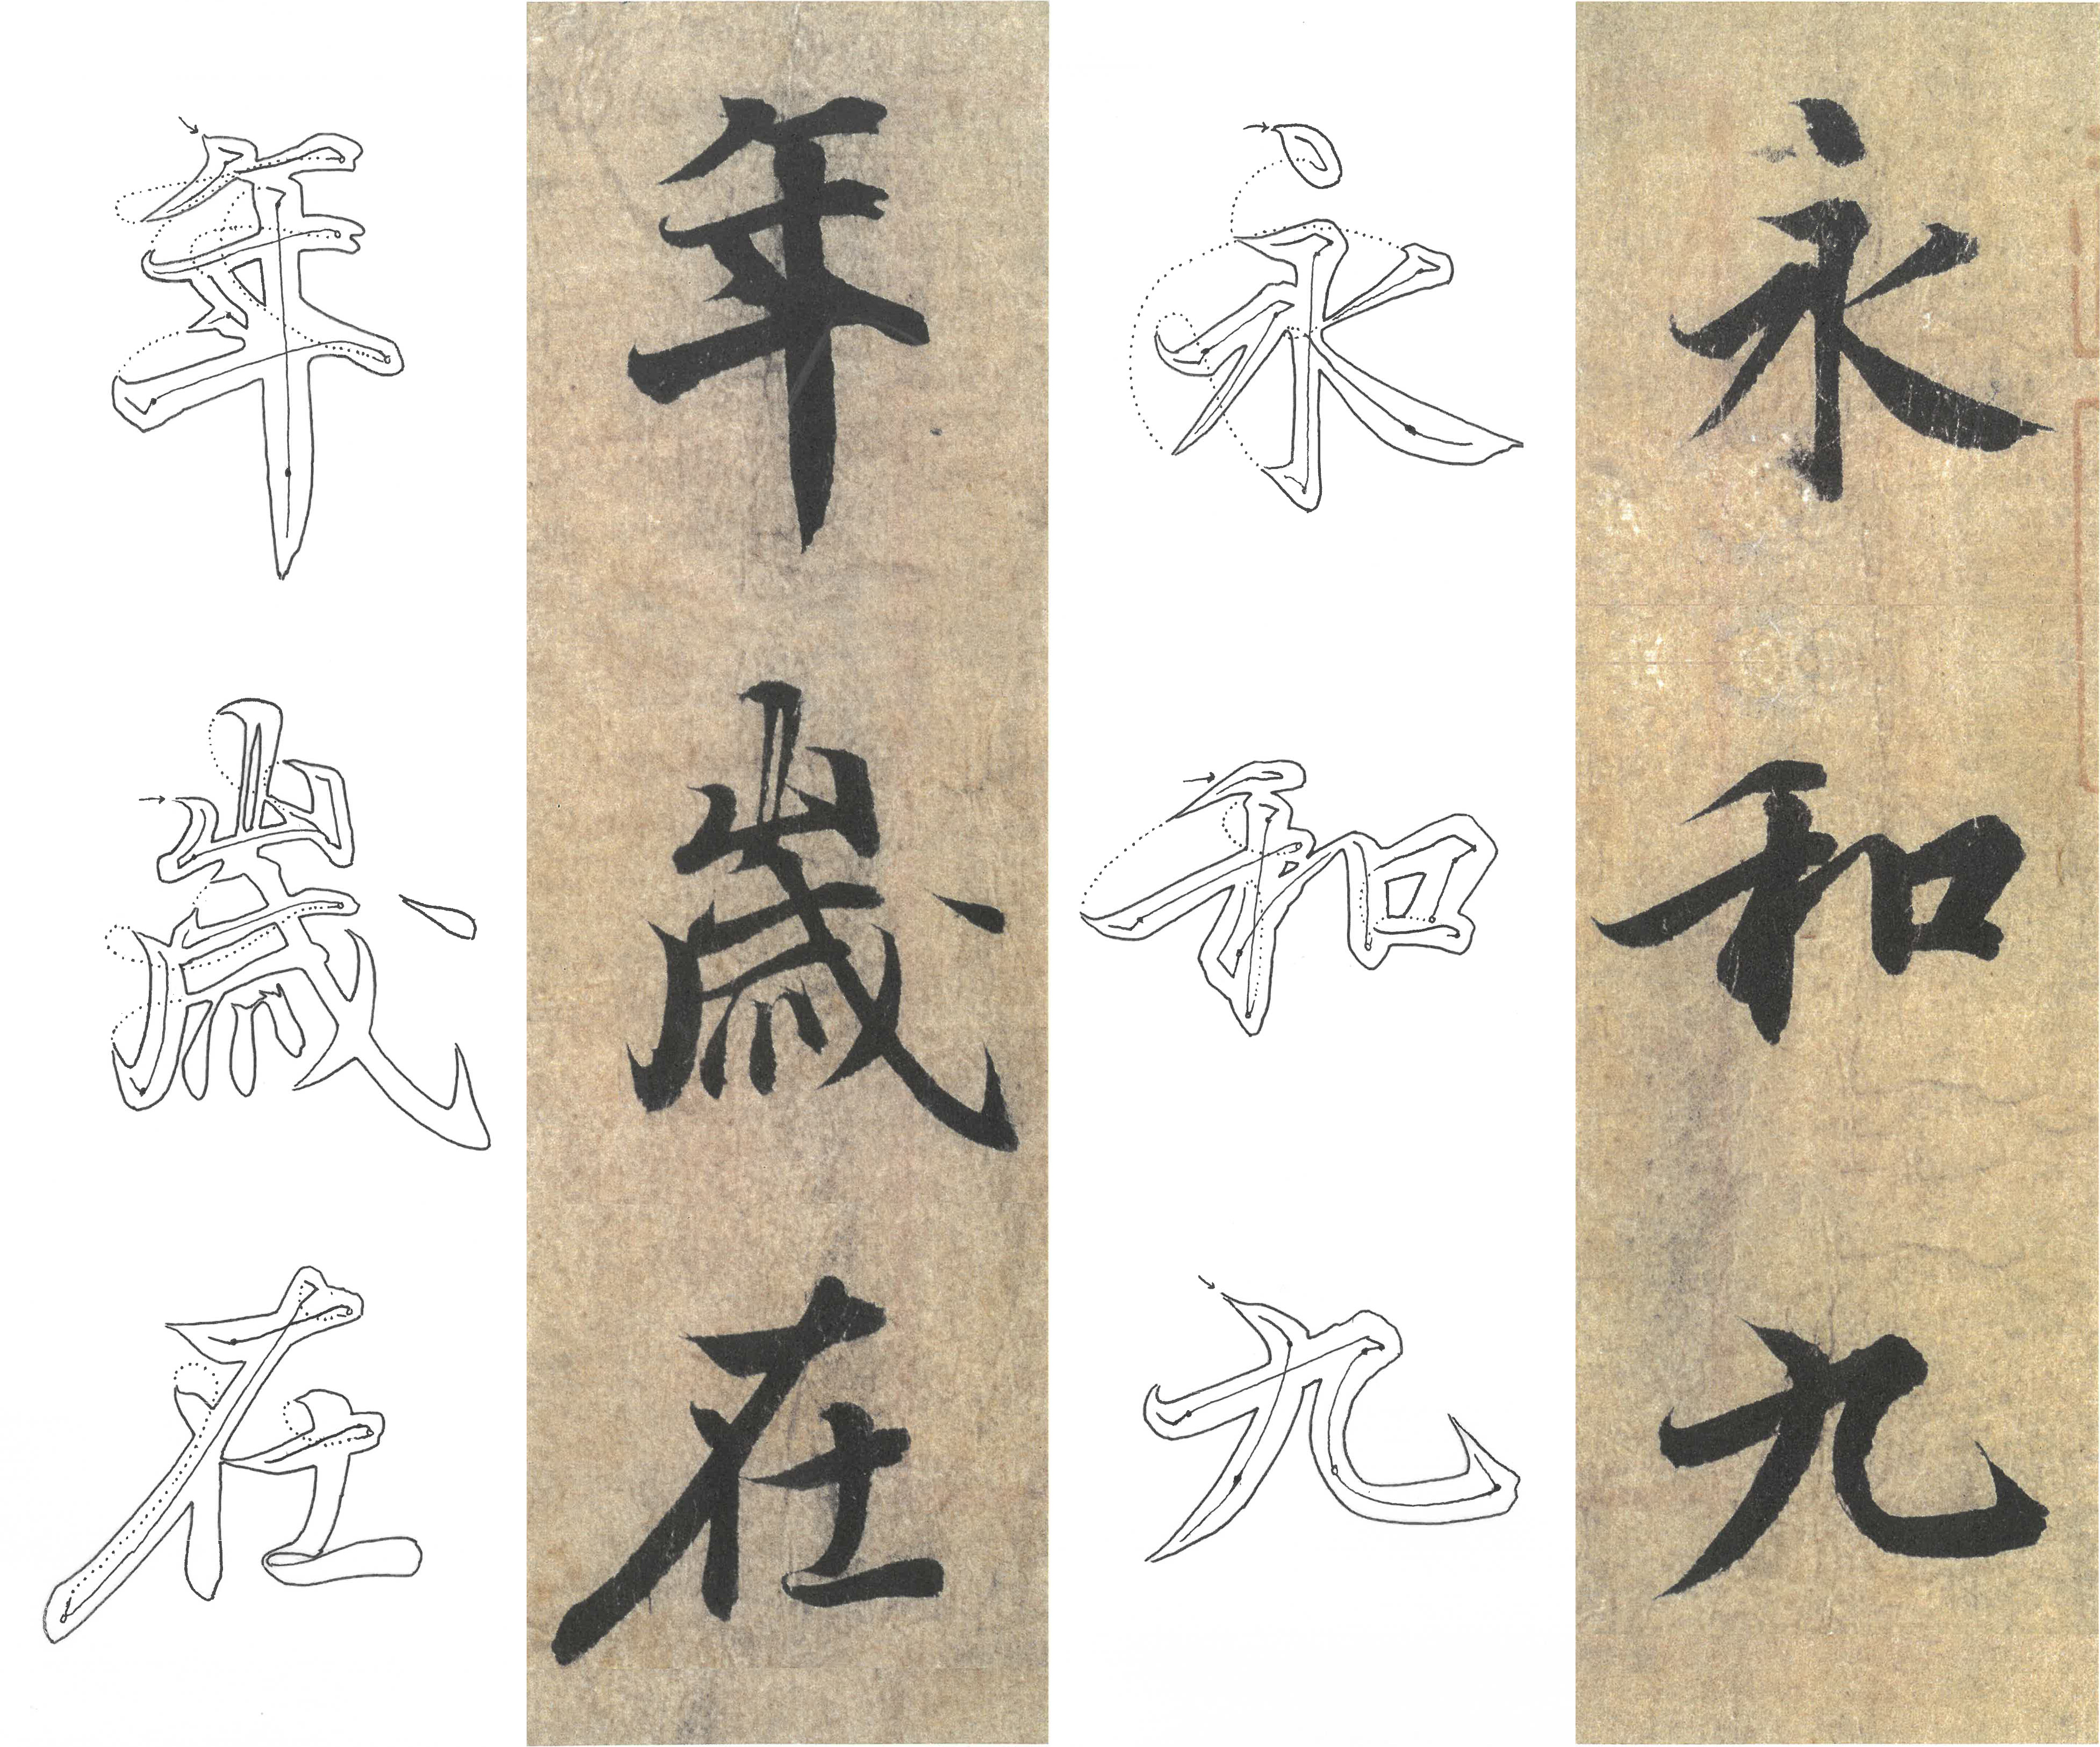 永和九
永和九
年歲在
年歲在